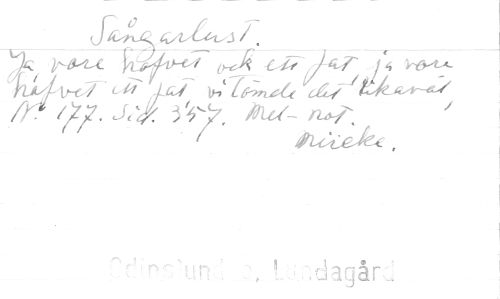 Sångarlust.
Ja vore hafvet ock ett fat, ja vore
hafvet ett fat vi tömde det likaväl,
N: 177. Sid. 357. Mel-not.
Lundagård